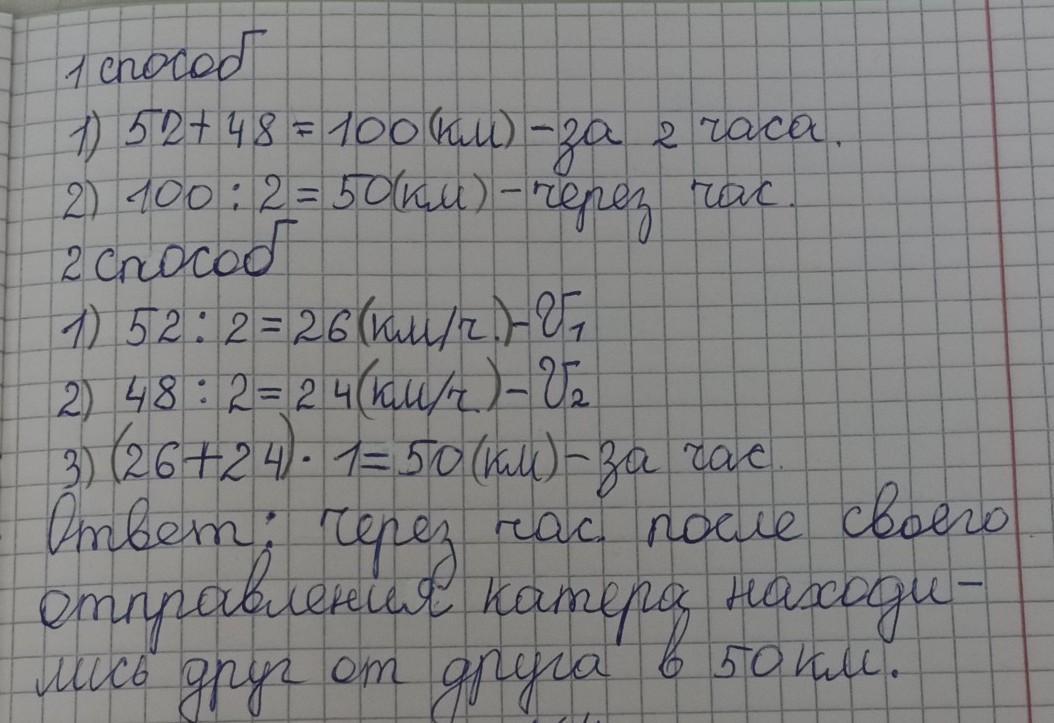 1 способ
1) 52+48=100(км)-за 2 часа.
2) 100:2=50(км)-через час.
2 способ
1) 52:2=26(км/ч.)-V₁
2) 48:2=24(км/ч.)-V₂
3) (26+24)·1=50(км)-за час.
Ответ: через час после своего
отправления катера находи-
лись друг от друга в 50 км.